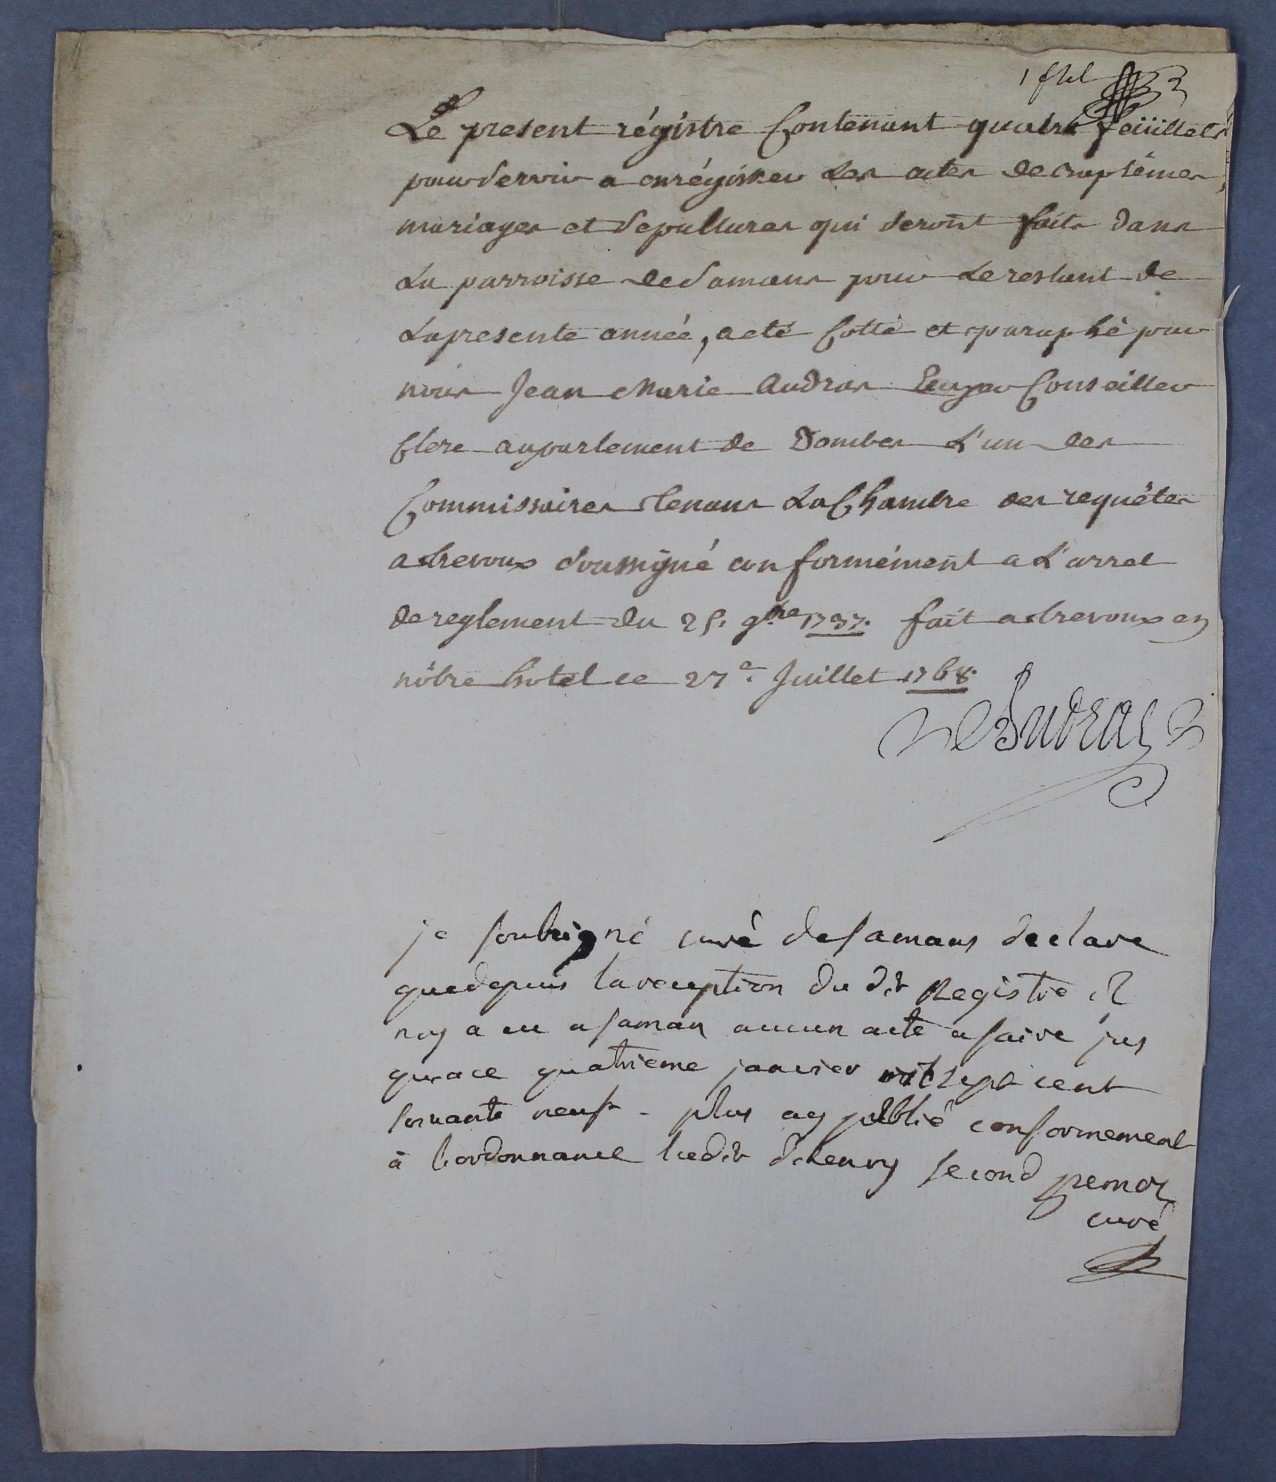 1 f.llet
Le present régistre Contenant quatre feüillets
pour servir a enrégistrer les actes de Baptêmes,
mariages et Sepultures qui seront faits dans
La parroisse de Samans pour Le restant de
La presente année, a eté Cotté et paraphé par
nous Jean Marie Audras Ecuyer Conseiller
Clerc au parlement de Dombes L'un des
Commissaires tenans La Chambre des requêtes
a trevoux soussigné conformément a L'arret
de reglement du 25. 9bre 1737. fait a trevoux en
nôtre hotel ce 27e. Juillet 1768.
Audras
je soubsigné curé de samans declare
que depuis la reception du dit Registre il
ny a eu a saman aucun acte a faire jus
qu a ce quatrieme janvier mil sept cent
soixante neuf - plus ay publié conformement
à l'ordonnance l'edit d'henry second
curé